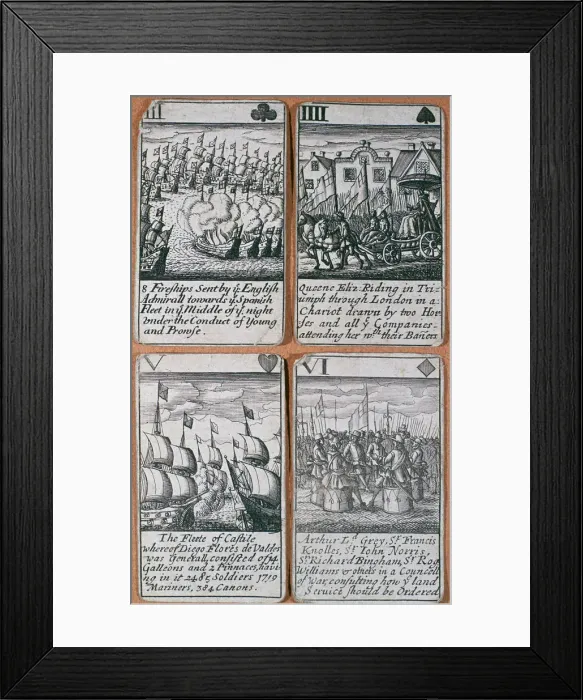 III
8 Fireships Sent by yᵉ English
Admirall towards yᵉ Spanish
Fleet in yᵉ Middle of yᵉ night
Under the Conduct of Young
and Prowse.
IIII
Queene Eliz: Riding in Tri=
umph through London in a
Chariot drawn by two Hor
ses and all yᵉ Companies
attending her wᵗʰ their Baners
V
The Fleete of Castile
whereof Diego Flores de Valdes
was Generall, consisted of 14
Galleons and 2 Pinnaces, havi
ng in it 2485 Soldiers 1719
Mariners, 384 Canons.
VI
Arthur Lᵈ Grey, Sʳ Francis
Knolles, Sʳ John Norris,
Sʳ Richard Bingham, Sʳ Rog
Williams & others in a Councell
of War, consulting how yᵉ land
Service should be Ordered